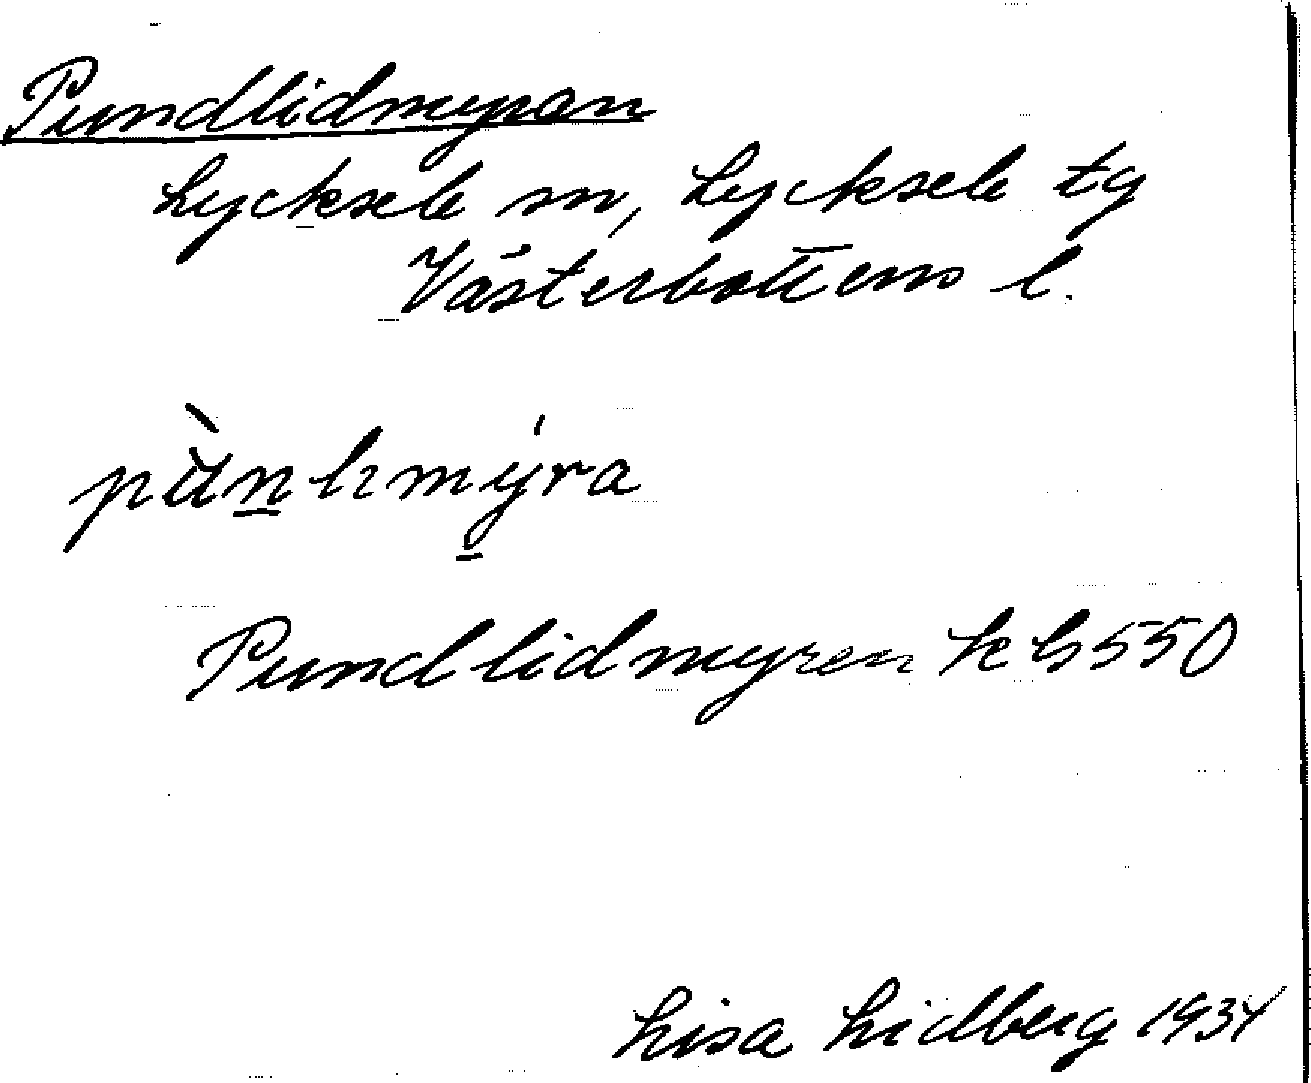 Pundlidmyran
Lycksele sn, Lycksele tg
Västerbottens l.
pùnlımýra
Pundlidmyren kb 550
Lisa Lidberg 1934